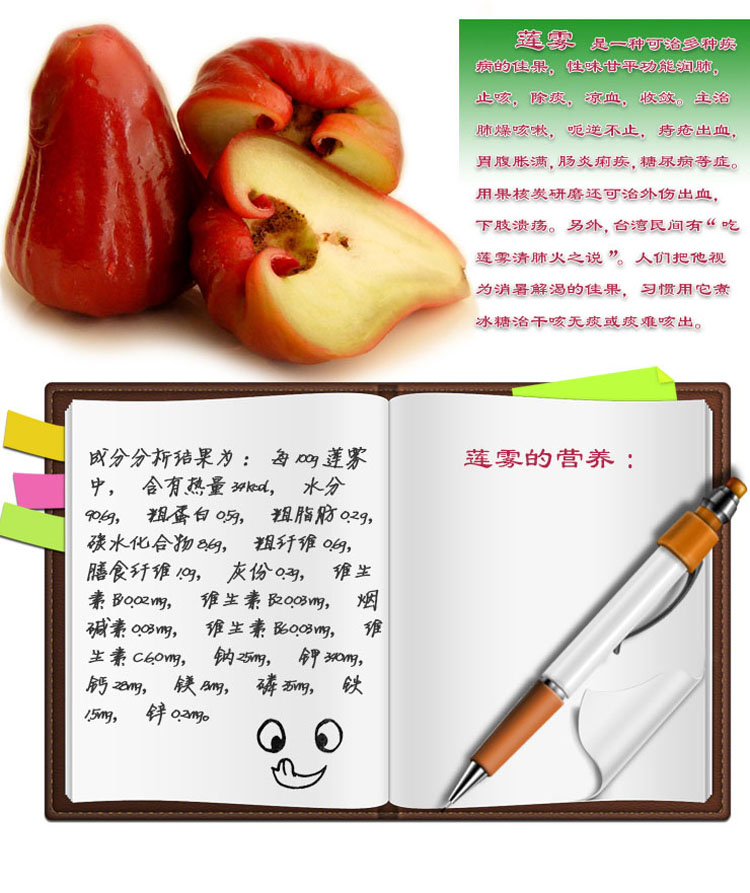 莲雾 是一种可治多种疾
病的佳果，性味甘平功能润肺，
止咳，除痰，凉血，收敛。主治
肺燥咳嗽，呃逆不止，痔疮出血，
胃腹胀满，肠炎痢疾，糖尿病等症。
用果核炭研磨还可治外伤出血，
下肢溃疡。另外，台湾民间有“吃
莲雾清肺火之说”。人们把他视
为消暑解渴的佳果，习惯用它煮
冰糖治干咳无痰或痰难咳出。
成分分析结果为： 每100g莲雾
中， 含有热量34kcal， 水分
90.6g， 粗蛋白0.5g， 粗脂肪0.2g，
碳水化合物8.6g， 粗纤维0.6g，
膳食纤维1.0g， 灰份0.2g， 维生
素B10.02mg， 维生素B20.03mg， 烟
碱素0.03mg， 维生素B60.03mg， 维
生素C6.0mg， 钠25mg， 钾340mg，
钙28mg， 镁13mg， 磷35mg， 铁
1.5mg， 锌0.2mg。
莲雾的营养：